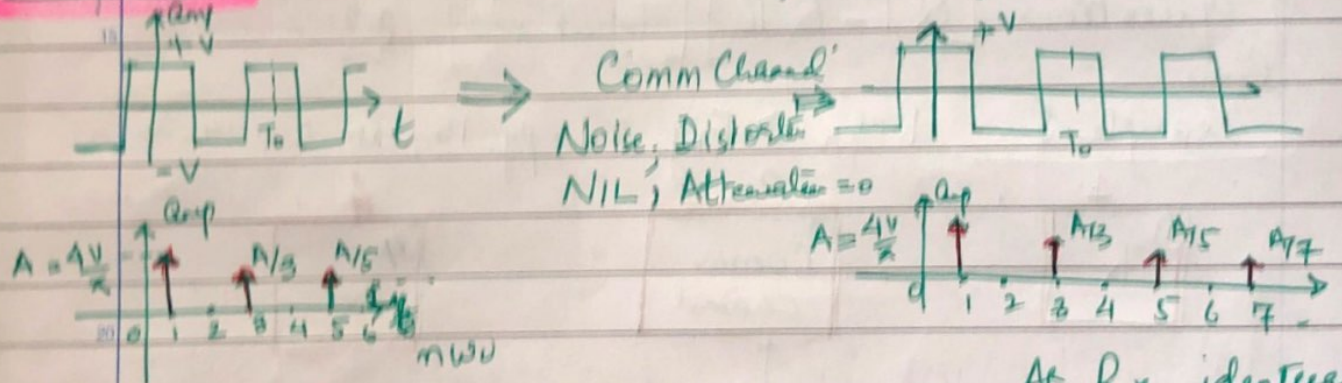 Amp
+V
-V
T₀
t
Comm Channel
Noise, Distortn
NIL, Attenuation = 0
+V
T₀
Amp
A = 4V/π
A/3
A/5
0 1 2 3 4 5 6
nω₀
Amp
A = 4V/π
A/3
A/5
A/7
0 1 2 3 4 5 6 7
At